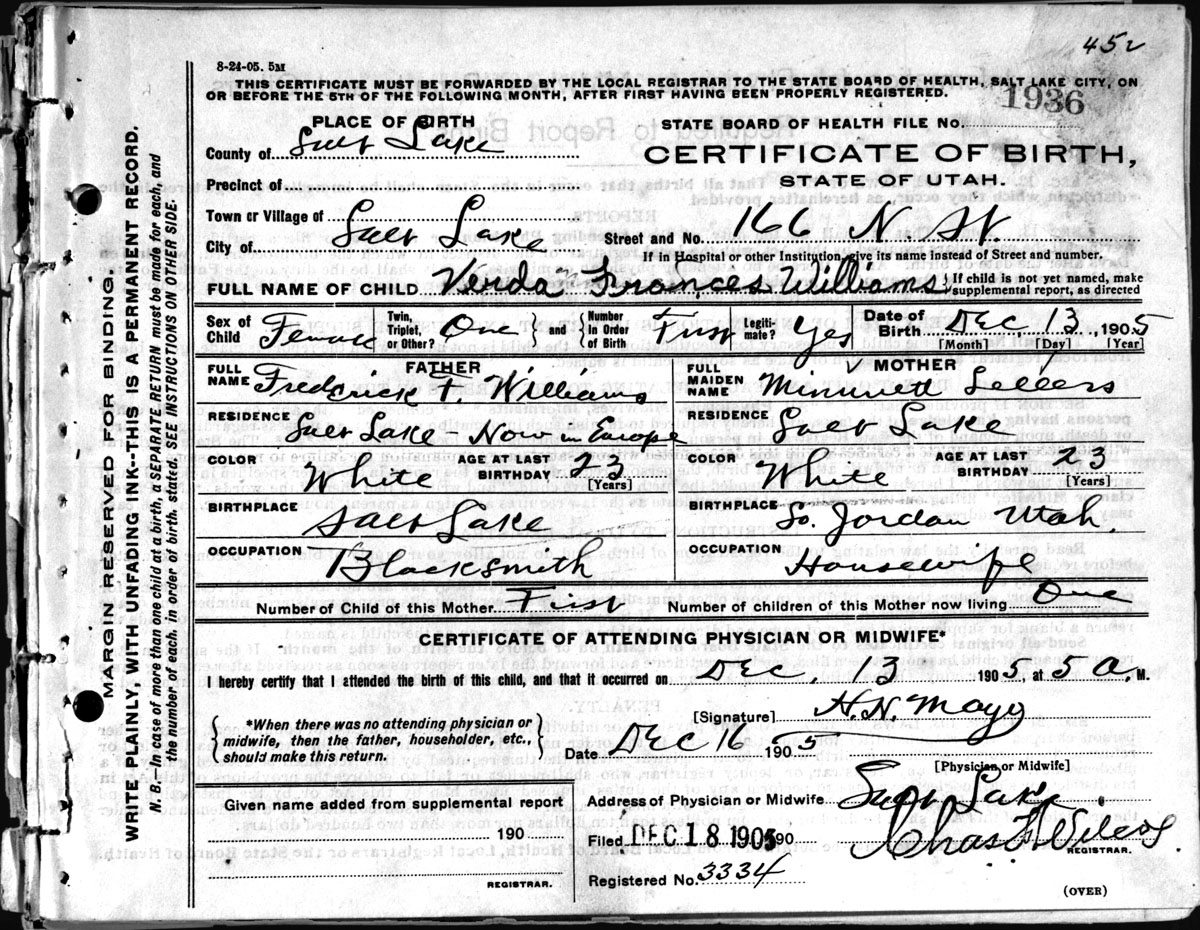 452
8-24-05. 5M
THIS CERTIFICATE MUST BE FORWARDED BY THE LOCAL REGISTRAR TO THE STATE BOARD OF HEALTH, SALT LAKE CITY, ON
OR BEFORE THE 5TH OF THE FOLLOWING MONTH, AFTER FIRST HAVING BEEN PROPERLY REGISTERED.
1936
PLACE OF BIRTH
STATE BOARD OF HEALTH FILE NO.
County of Salt Lake
CERTIFICATE OF BIRTH,
STATE OF UTAH.
Precinct of
Town or Village of
City of Salt Lake
Street and No. 166 N St.
If in Hospital or other Institution, give its name instead of Street and number.
FULL NAME OF CHILD Verda Frances Williams { If child is not yet named, make
supplemental report, as directed
Sex of Child Female { Twin, Triplet, or Other? One } and { Number in Order of Birth First Legitimate? Yes Date of Birth Dec 13, 1905
[Month] [Day] [Year]
FATHER
FULL NAME Frederick F Williams
RESIDENCE Salt Lake Now in Europe
COLOR White AGE AT LAST BIRTHDAY 23 [Years]
BIRTHPLACE Salt Lake
OCCUPATION Blacksmith
MOTHER
FULL MAIDEN NAME Sellers
RESIDENCE Salt Lake
COLOR White AGE AT LAST BIRTHDAY 23 [Years]
BIRTHPLACE So. Jordan Utah.
OCCUPATION Housewife
Number of Child of this Mother First Number of children of this Mother now living One
CERTIFICATE OF ATTENDING PHYSICIAN OR MIDWIFE*
I hereby certify that I attended the birth of this child, and that it occurred on Dec. 13 1905, at 5 a. M.
{ *When there was no attending physician or
midwife, then the father, householder, etc.,
should make this return. }
[Signature] H. N. Mayo
Date Dec 16 1905
[Physician or Midwife]
Given name added from supplemental report
190
REGISTRAR.
Address of Physician or Midwife Salt Lake
Filed DEC 18 1905 190
Chas F Wilcox
REGISTRAR.
Registered No. 3334
(OVER)
MARGIN RESERVED FOR BINDING
WRITE PLAINLY, WITH UNFADING INK--THIS IS A PERMANENT RECORD.
N. B. In case of more than one child at a birth, a SEPARATE RETURN must be made for each, and
the number of each, in order of birth, stated. SEE INSTRUCTIONS ON OTHER SIDE.